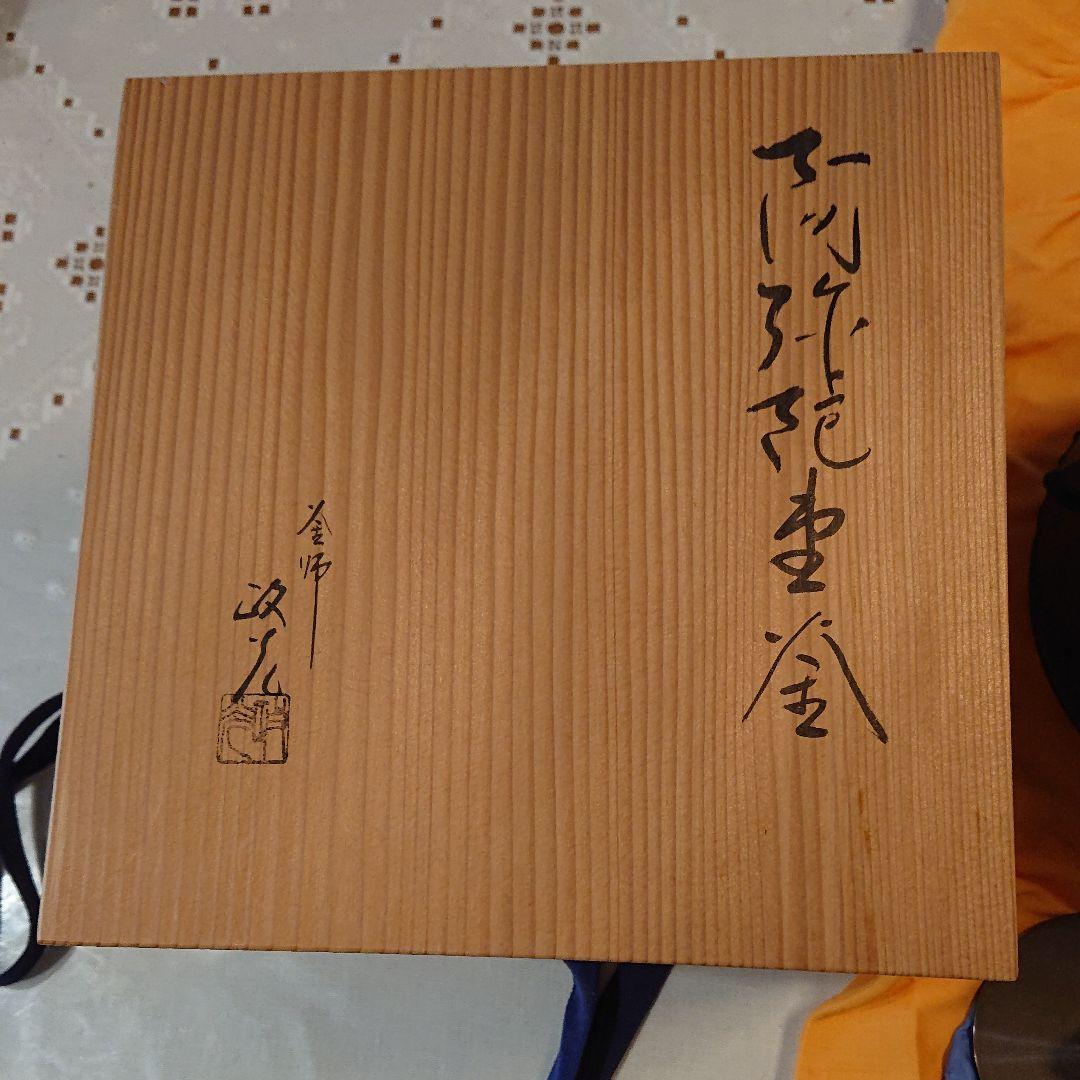 阿弥陀堂釜
釜師
政光